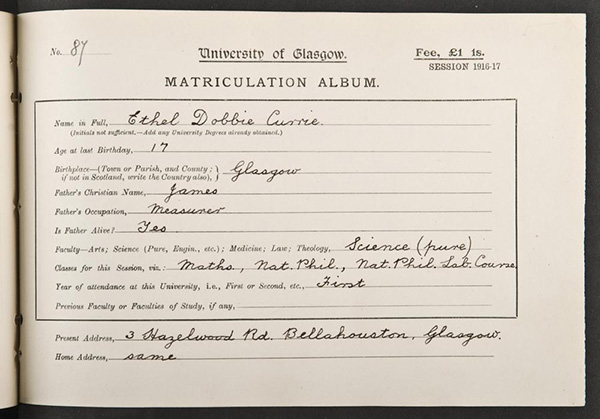 No. 87 University of Glasgow. Fee, £1 1s.
SESSION 1916-17
MATRICULATION ALBUM.
Name in Full, Ethel Dobbie Currie.
(Initials not sufficient.—Add any University Degrees already obtained.)
Age at last Birthday, 17
Birthplace—(Town or Parish, and County;
if not in Scotland, write the Country also), } Glasgow
Father's Christian Name, James
Father's Occupation, Measurer
Is Father Alive? Yes
Faculty—Arts; Science (Pure, Engin., etc.); Medicine; Law; Theology, Science (pure)
Classes for this Session, viz.: Maths., Nat. Phil., Nat. Phil. Lab. Course
Year of attendance at this University, i.e., First or Second, etc., First
Previous Faculty or Faculties of Study, if any,
Present Address, 3 Hazelwood Rd. Bellahouston, Glasgow.
Home Address, same